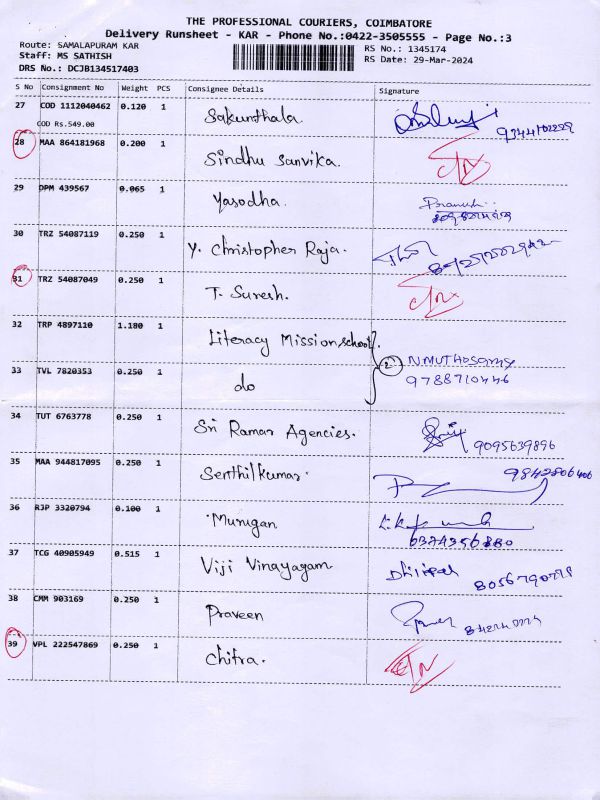 THE PROFESSIONAL COURIERS, COIMBATORE
Delivery Runsheet - KAR - Phone No.:0422-3505555 - Page No.:3
Route: SAMALAPURAM KAR
Staff: MS SATHISH
DRS No.: DCJB134517403
RS No.: 1345174
RS Date: 29-Mar-2024
S No Consignment No Weight PCS Consignee Details Signature
27 COD 1112040462 0.120 1 Sakunthala
COD Rs.549.00
28 MAA 864181968 0.200 1 Sindhu Sanvika.
29 DPM 439567 0.065 1 Yasodha.
30 TRZ 54087119 0.250 1 Y. Christopher Raja.
31 TRZ 54087049 0.250 1 T. Suresh.
32 TRP 4897110 1.180 1 Literacy Mission school.
33 TVL 7820353 0.250 1 do
2 9788710446
34 TUT 6763778 0.250 1 Sri Ramar Agencies. 9095639896
35 MAA 944817095 0.250 1 Senthilkumar. 9842806406
36 RJP 3320794 0.100 1 Murugan 6374356880
37 TCG 40905949 0.515 1 Viji Vinayagam
38 CMM 903169 0.250 1 Praveen
39 VPL 222547869 0.250 1 Chitra.